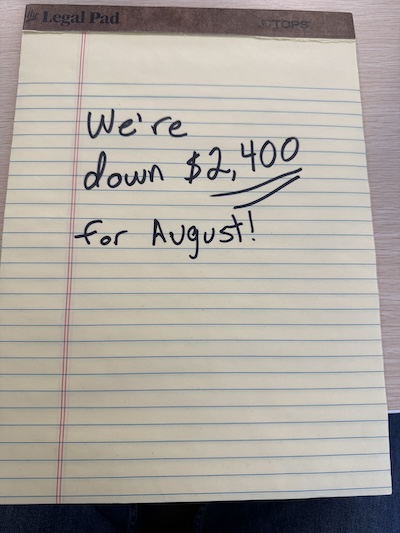 the Legal Pad
TOPS
We're
down $2,400
for August!